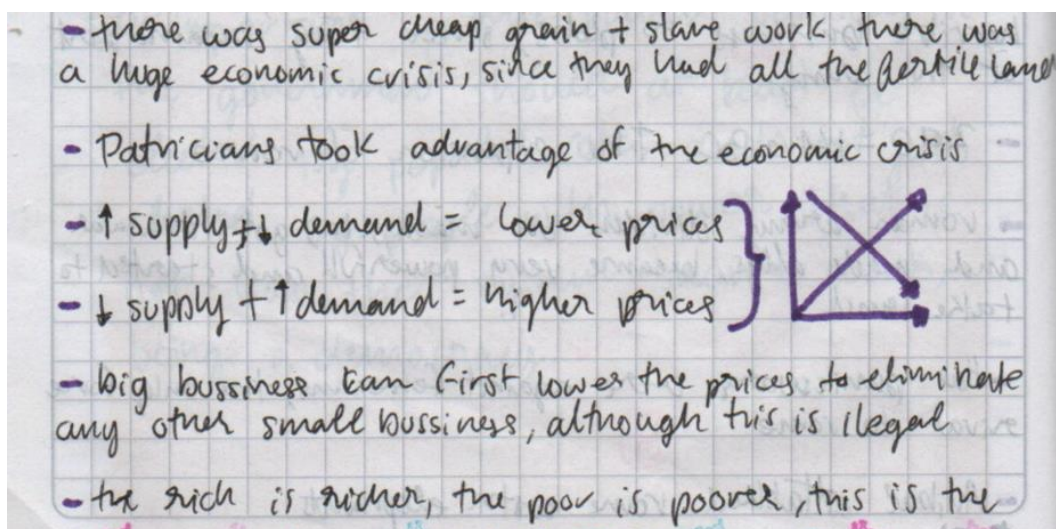 - there was super cheap grain + slave work there was
a huge economic crisis, since they had all the fertile land
- Patricians took advantage of the economic crisis
- ↑ supply + ↓ demand = lower prices
- ↓ supply + ↑ demand = higher prices
- big bussiness can first lower the prices to eliminate
any other small bussiness, although this is ilegal
- the rich is richer, the poor is poorer, this is the